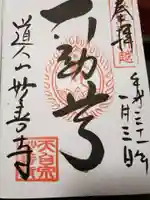 奉拝
平成三十一年
一月三日
不動尊
道人山妙善寺